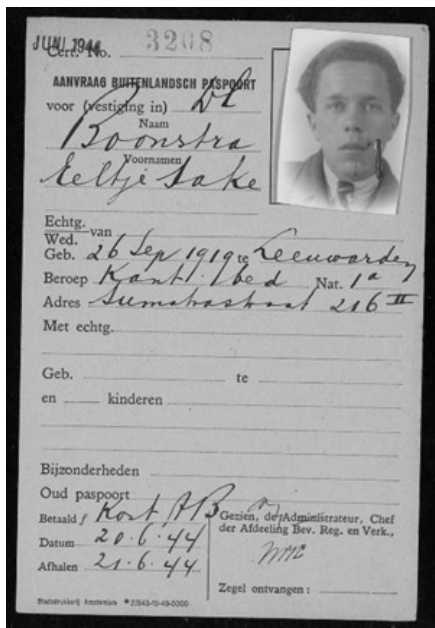 JUNI 1944
Cert. No. 3208
AANVRAAG BUITENLANDSCH PASPOORT
voor (vestiging in) Dl
Naam
Boonstra
Voornamen
Eeltje Sake
Echtg.
Wed. van
Geb. 26 Sep 1919 te Leeuwarden
Beroep Kant. bed Nat. 1a
Adres Sumatrastraat 216 II
Met echtg.
Geb. te
en kinderen
Bijzonderheden
Oud paspoort
Betaald f Kost. AB
Datum 20.6.44
Afhalen 21.6.44
Gezien, de Administrateur, Chef
der Afdeeling Bev. Reg. en Verk.,
Zegel ontvangen :
Stadsdrukkerij Amsterdam